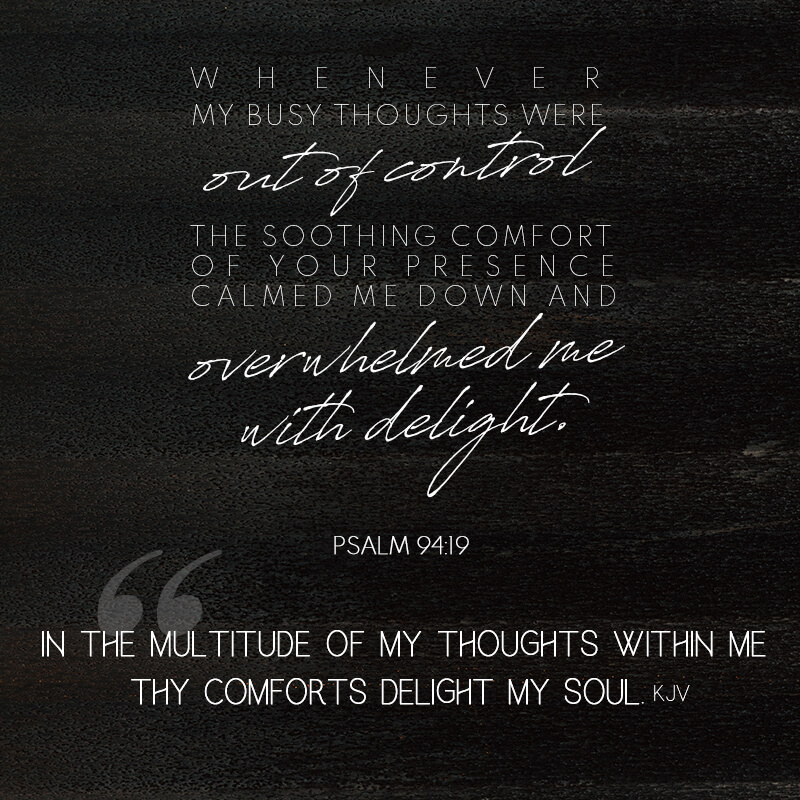 WHENEVER
MY BUSY THOUGHTS WERE
out of control
THE SOOTHING COMFORT
OF YOUR PRESENCE
CALMED ME DOWN AND
overwhelmed me
with delight.
PSALM 94:19
“
IN THE MULTITUDE OF MY THOUGHTS WITHIN ME
THY COMFORTS DELIGHT MY SOUL. KJV